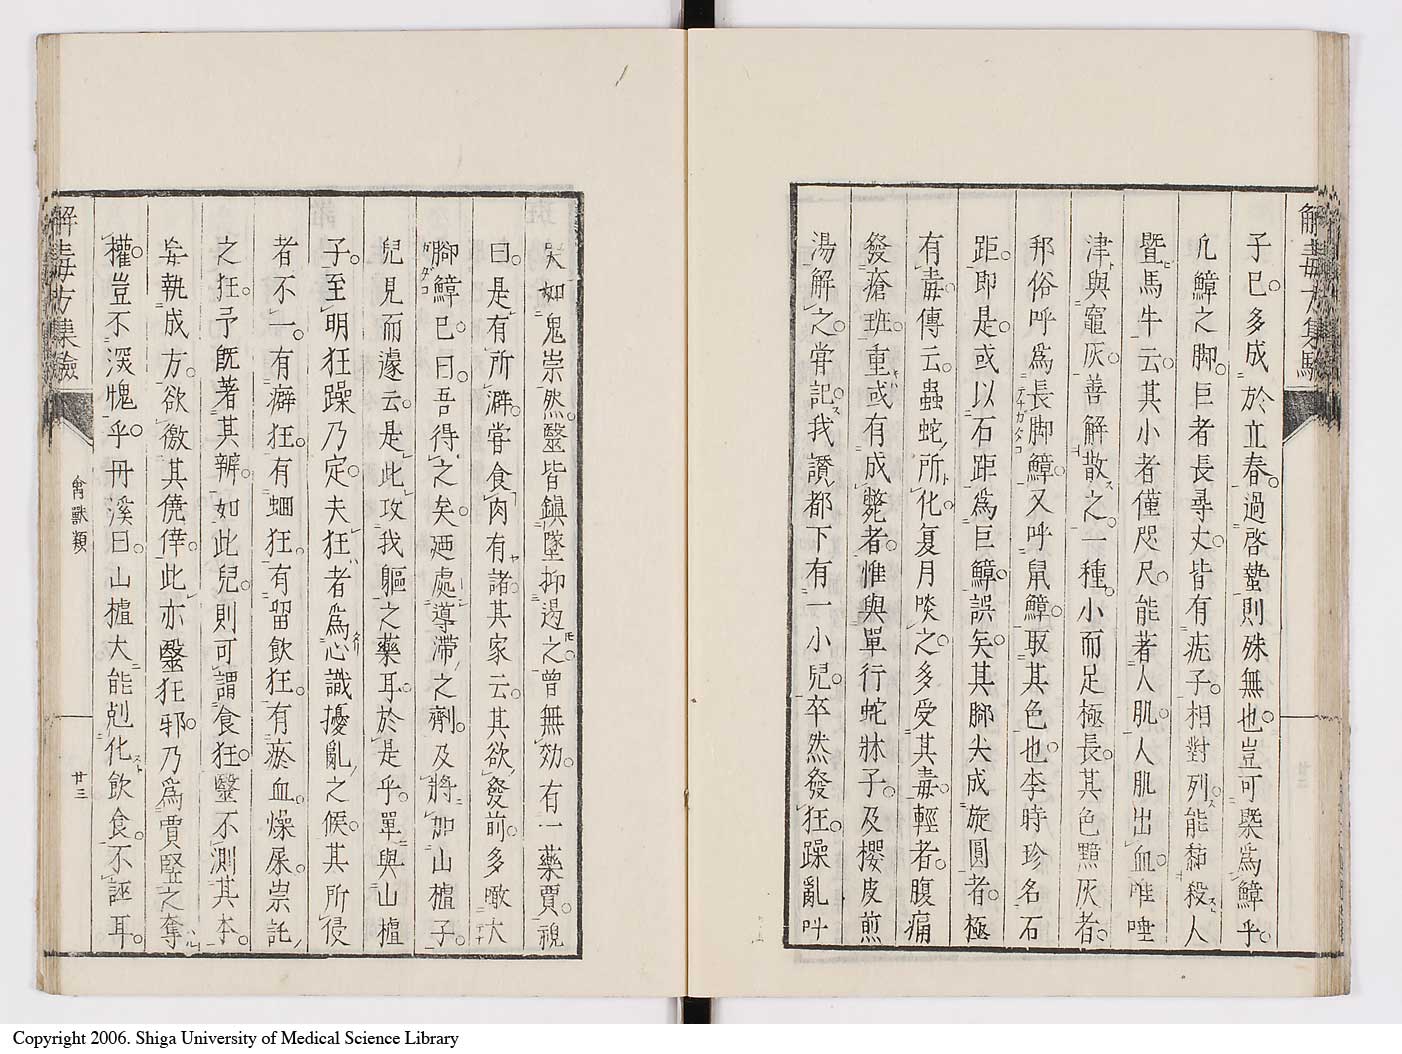 解毒方集驗
子巳多成於立春過啓蟄則殊無也豈可槩爲鱆乎
凢鱆之脚巨者長尋丈皆有疣子相對列能黏殺人
曁馬牛云其小者僅咫尺能著人肌人肌出血唯唾
津與竈灰善解散之一種小而足極長其色黯灰者
邦俗呼爲長脚鱆又呼鼠鱆取其色也李時珍名石
テナガダコ
距即是或以石距爲巨鱆誤矣其脚尖成旋圓者極
有毒傳云蟲蛇所化夏月啖之多受其毒輕者腹痛
發瘡斑重或有成斃者惟與單行蛇牀子及櫻皮煎
湯解之甞記我讃都下有一小兒卒然發狂躁亂叫
哭如鬼祟然醫皆鎭墜抑遏之曾無効有一藥賈視
曰是有所澼甞食肉有諸其家云其欲發前多噉大
脚鱆已曰吾得之矣廼處導滯之劑及將加山樝子
兒見而遽云是此攻我軀之藥耳於是乎單與山樝
子至明狂躁乃定夫狂者爲心識擾亂之候其所侵
者不一有癖狂有蛔狂有留飲狂有瘀血燥屎祟託
之狂予旣著其辨如此兒則可謂食狂醫不測其本
妄執成方欲徼其僥倖此亦醫狂邪乃爲賈豎之奪
權豈不深愧乎丹溪曰山樝大能剋化飲食不誣耳
解毒方集驗
禽獸類
廿三
Copyright 2006. Shiga University of Medical Science Library